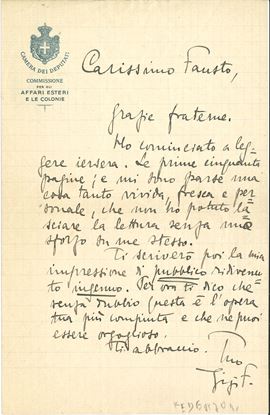 CAMERA DEI DEPUTATI
COMMISSIONE
PER GLI
AFFARI ESTERI
E LE COLONIE
Carissimo Fausto,
Grazie fraterne.
Ho cominciato a leg-
gere iersera. Le prime cinquanta
pagine; e mi sono parse una
cosa tanto vivida, fresca e per-
sonale, che non ho potuto la-
sciare la lettura senza uno
sforzo su me stesso.
Ti scriverò poi la mia
impressione di pubblico ridivenuto
ingenuo. Per ora ti dico che
senza dubbio questa è l'opera
tua più compiuta e che ne puoi
essere orgoglioso.
Ti abbraccio. Tuo
Gigi F.